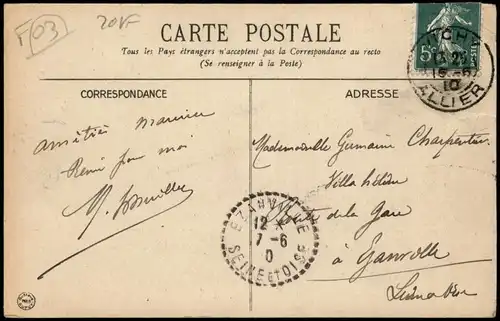 F03
20F
CARTE POSTALE
Tous les Pays étrangers n'acceptent pas la Correspondance au recto
(Se renseigner à la Poste)
CORRESPONDANCE
ADRESSE
5c
ALLIER
10
amitiés Maurice
pour moi
M.
Mademoiselle Germaine Charpentier
Villa Hélène
Route de la Gare
à Ezanville
EZANVILLE
12
7-6
SEINE ET OISE